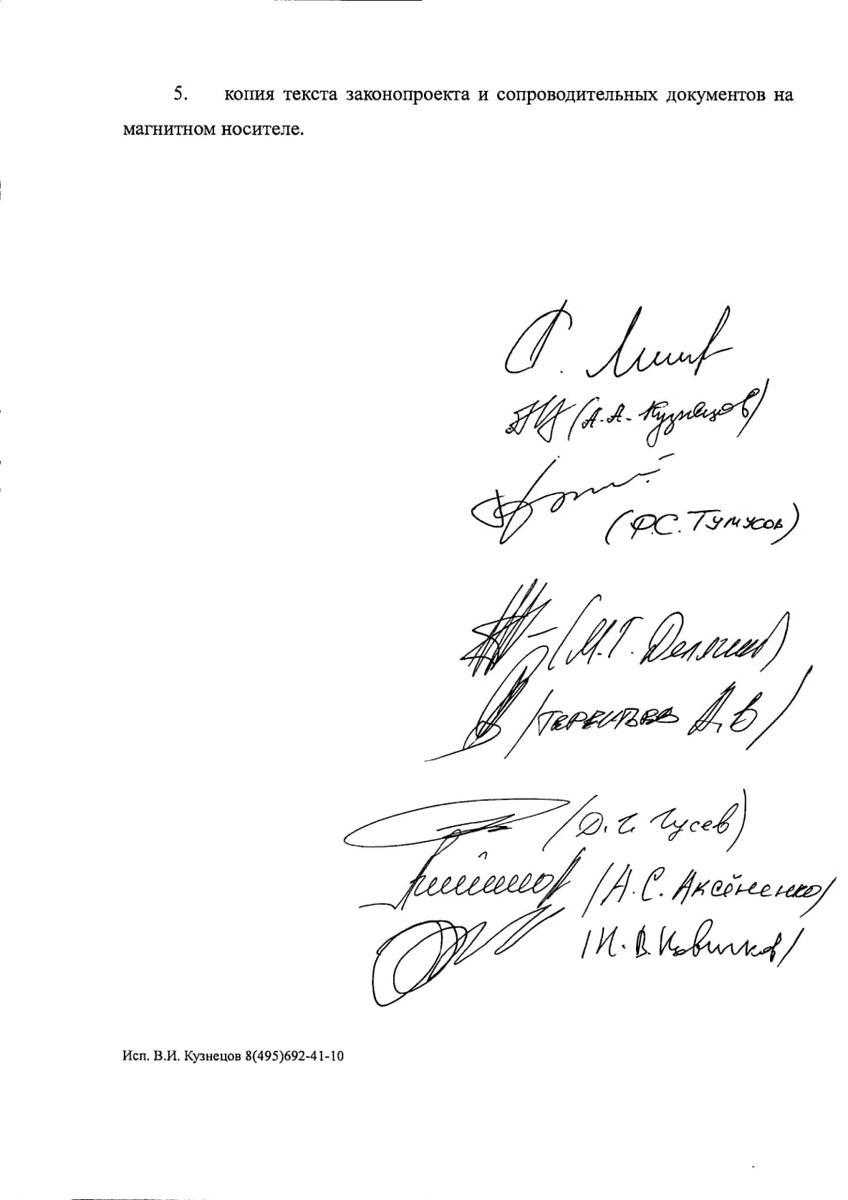 5. копия текста законопроекта и сопроводительных документов на
магнитном носителе.
(А.А. Кузнецов)
(Ф.С. Тумусов)
(М.Г. Делягин)
/Терентьев А.В/
(Д.Г. Гусев)
/А.С. Аксёненко/
/И.В. Новичков/
Исп. В.И. Кузнецов 8(495)692-41-10